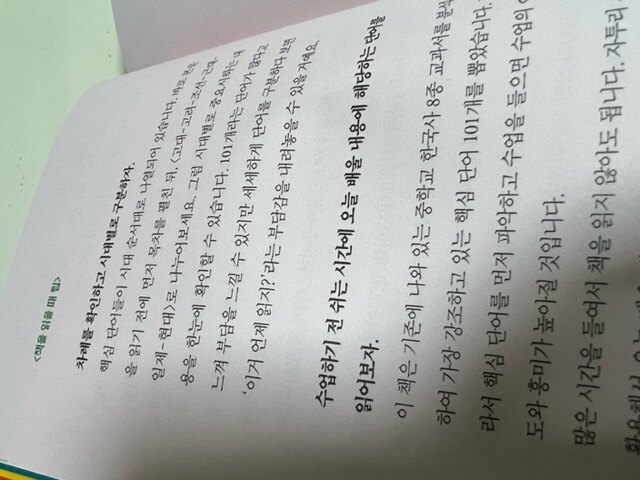 <책을 읽을 때 팁>
차례를 확인하고 시대별로 구분하자.
핵심 단어들이 시대 순서대로 나열되어 있습니다. 바로 본문
을 읽기 전에 먼저 목차를 펼친 뒤, <고대-고려-조선-근대-
일제-현대>로 나누어보세요. 그럼 시대별로 중요시하는 내
용을 한눈에 확인할 수 있습니다. 101개라는 단어가 많다고
느껴 부담을 느낄 수 있지만 세세하게 단어를 구분하다 보면
‘이거 언제 읽지?’라는 부담감을 내려놓을 수 있을 거예요.
수업하기 전 쉬는 시간에 오늘 배울 내용에 해당하는 단어를
읽어보자.
이 책은 기존에 나와 있는 중학교 한국사 8종 교과서를 분석
하여 가장 강조하고 있는 핵심 단어 101개를 뽑았습니다.
라서 핵심 단어를 먼저 파악하고 수업을 들으면 수업의
도와 흥미가 높아질 것입니다.
많은 시간을 들여서 책을 읽지 않아도 됩니다. 자투리